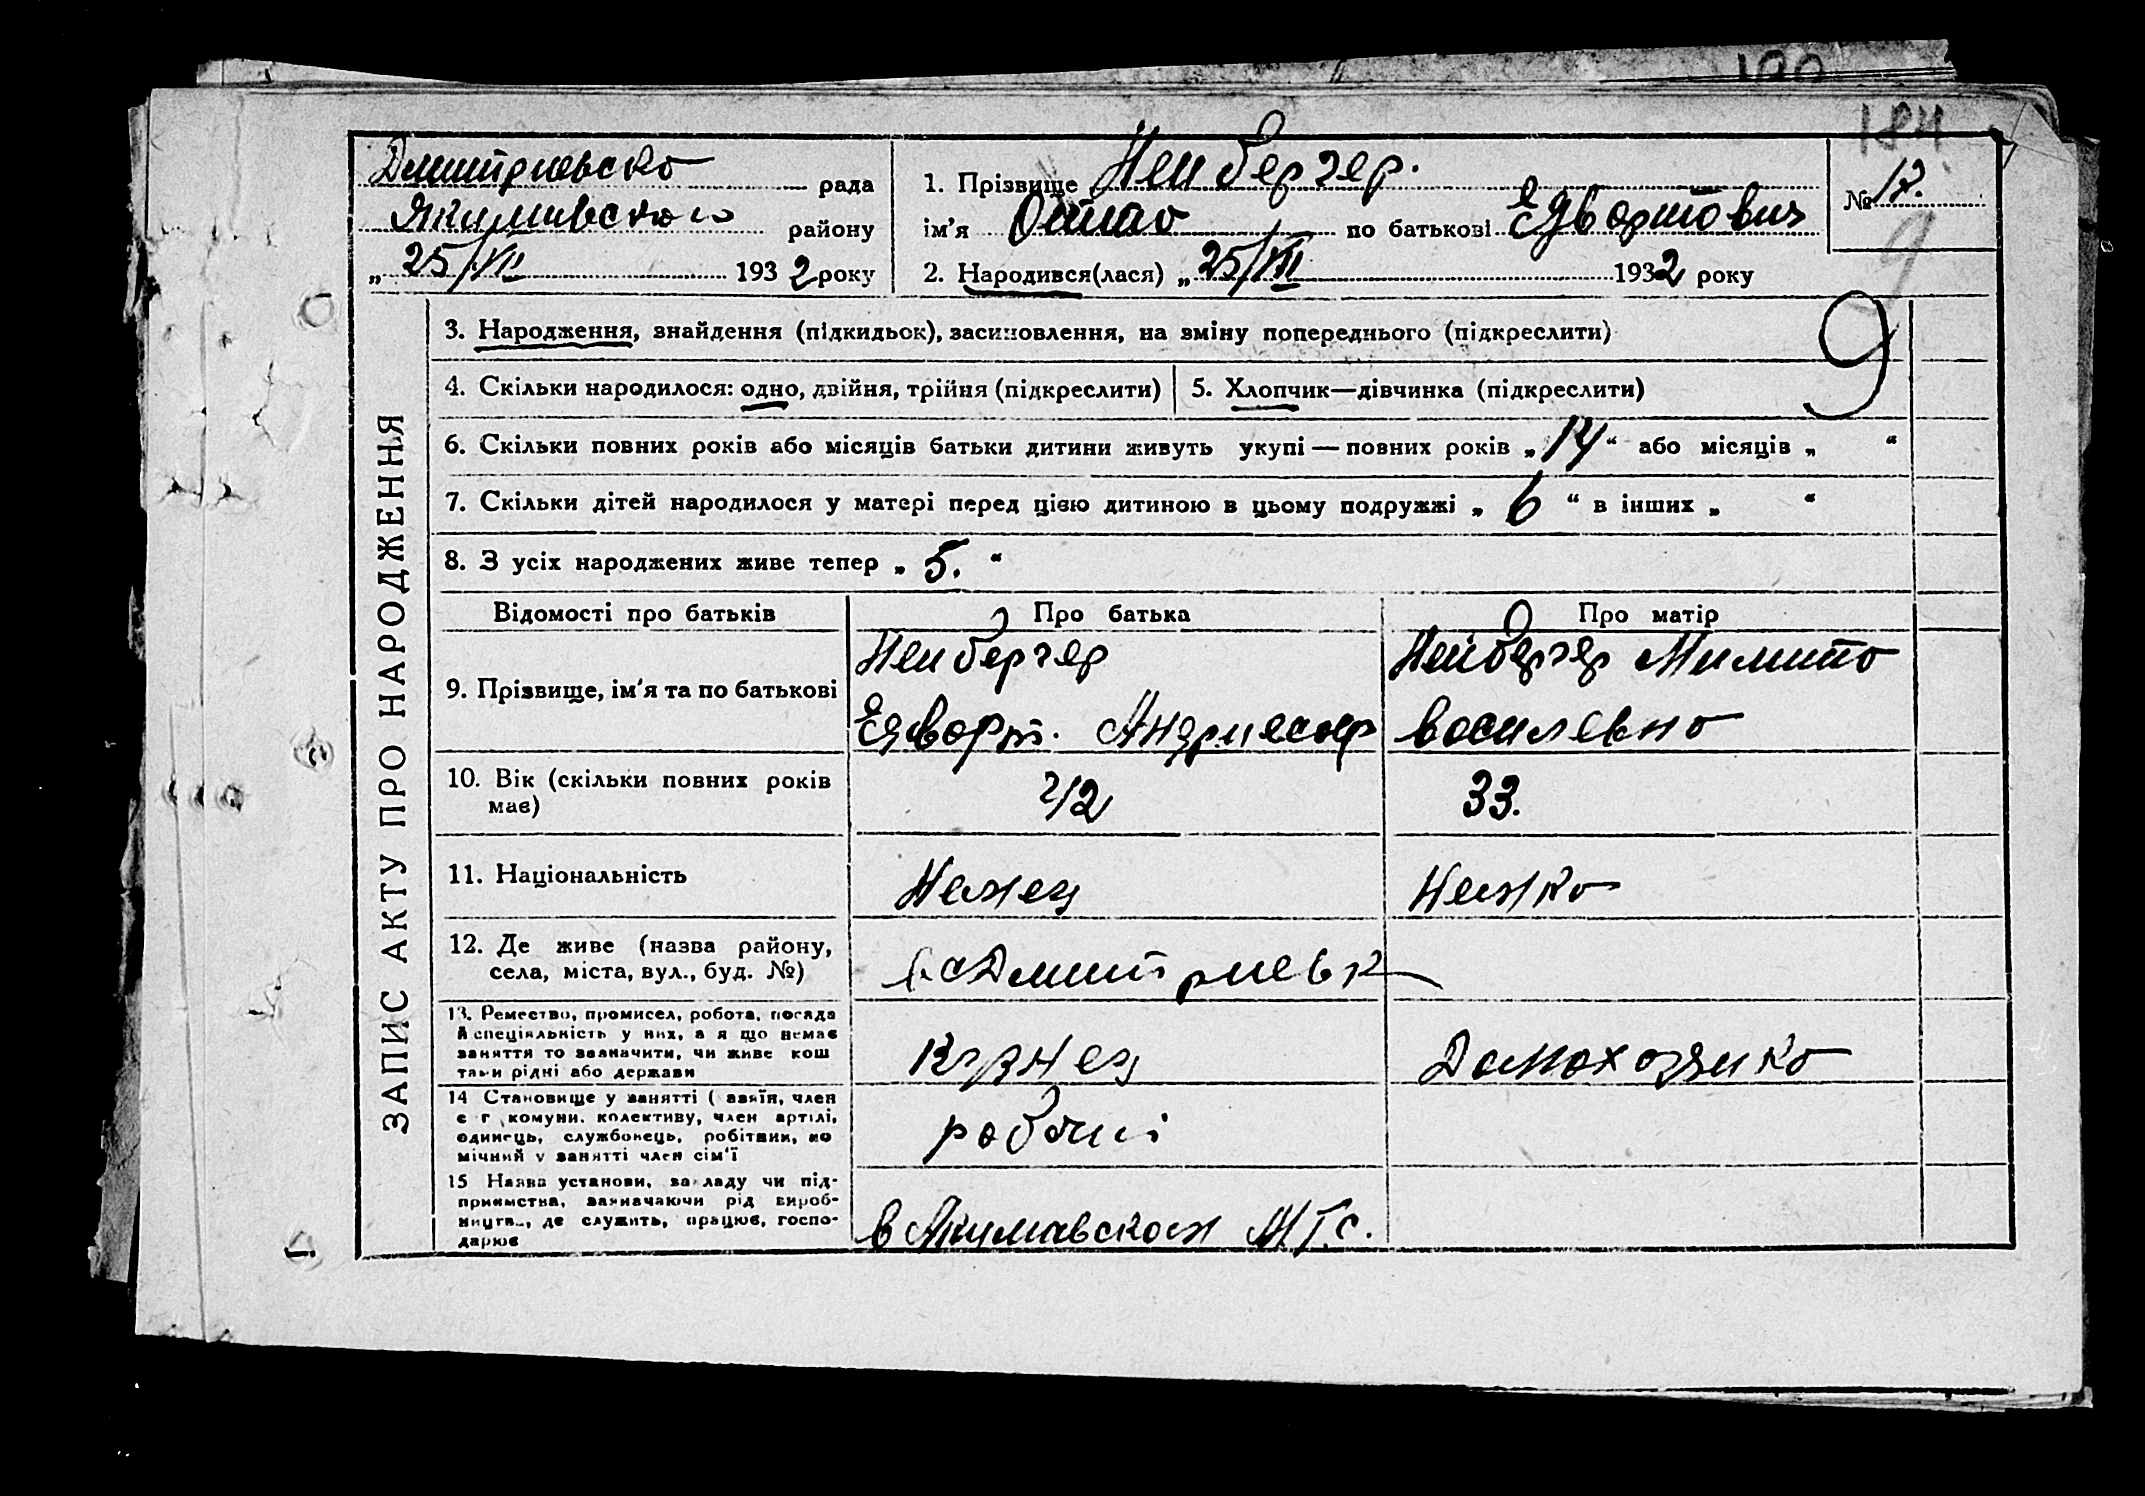 184
Дмитриевско рада
Якимивского району
„ 25/VII 1932 року
1. Прізвище Неибергер.
ім'я по батькові Едвартович
2. Народився(лася) „ 25/VII 1932 року
№ 12.
9
ЗАПИС АКТУ ПРО НАРОДЖЕННЯ
3. Народження, знайдення (підкидьок), засиновлення, на зміну попереднього (підкреслити)
4. Скільки народилося: одно, двійня, трійня (підкреслити)
5. Хлопчик—дівчинка (підкреслити)
6. Скільки повних років або місяців батьки дитини живуть укупі — повних років „ 14 “ або місяців „ “
7. Скільки дітей народилося у матері перед цією дитиною в цьому подружжі „ 6 “ в інших „ “
8. З усіх народжених живе тепер „ 5. “
Відомості про батьків Про батька Про матір
9. Прізвище, ім'я та по батькові
Неибергер
Едварт.
Нейбергер
василевно
10. Вік (скільки повних років
має)
42
33.
11. Національність
Немец
Немко
12. Де живе (назва району,
села, міста, вул., буд. №)
Дмитриевк
13. Ремество, промисел, робота, посада
й спеціяльність у них, а я що немає
заняття то зазначити, чи живе кош
тами рідні або держави
Кузнец
Домохозяико
14 Становище у занятті ( азяїн, член
с г комуни, колективу, член артілі,
одинець, службовець, робітник, по
мічний у занятті член сім'ї
рабочиі
15 Назва установи, закладу чи під-
приємства, зазначаючи рід вироб-
ництв., де служить, працює, госпо-
дарює
в Якимавском МТС.